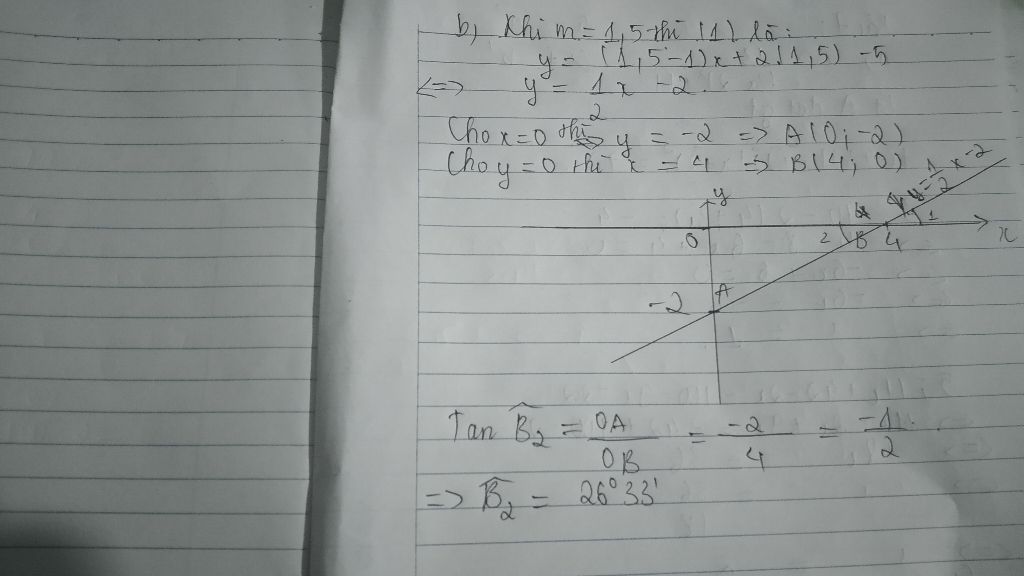 b, Khi m = 1,5 thì (1) là:
y = (1,5-1)x + 2(1,5) - 5
<=> y = 1/2 x - 2.
Cho x=0 thì y = -2 => A(0; -2)
Cho y=0 thì x = 4 => B(4; 0)
y = 1/2 x - 2
y
0 2 B 4 1 x
-2 A
Tan B̂₂ = OA/OB = -2/4 = -1/2
=> B̂₂ = 26°33'